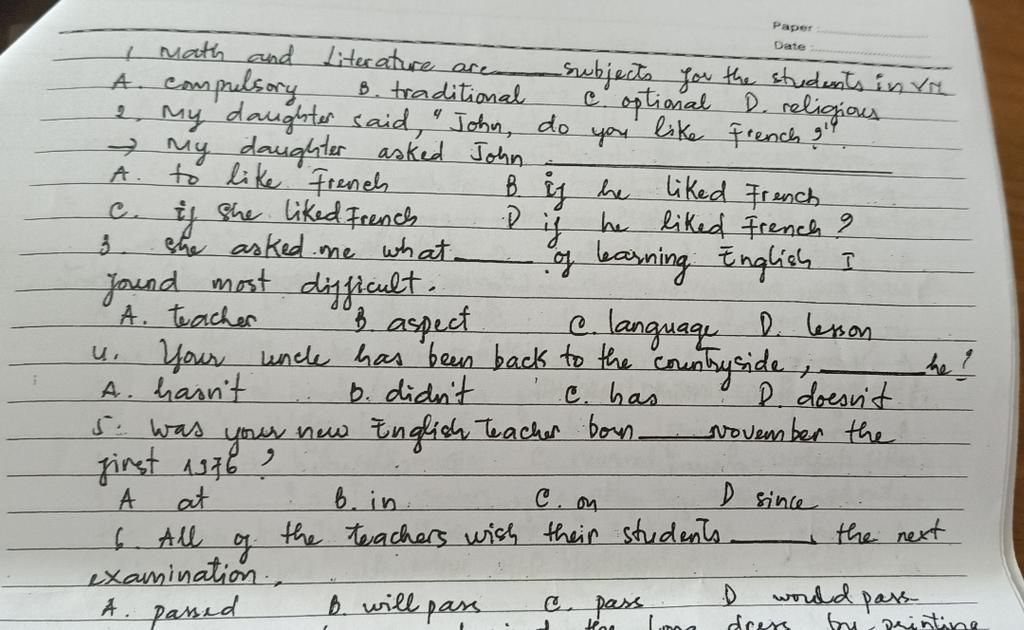 Paper
Date
1 Math and Literature are ______ subjects for the students in VN
A. compulsory B. traditional C. optional D. religious
2. My daughter said, "John, do you like French?"
→ My daughter asked John ______
A. to like French B if he liked French
C. if she liked French D if he liked French?
3. She asked me what ______ of learning English I
found most difficult.
A. teacher B aspect C. language D. lesson
4. Your uncle has been back to the countryside, ______ he?
A. hasn't B. didn't C. has D. doesn't
5. Was your new English teacher born ______ November the
first 1976?
A at B. in C. on D since
6. All of the teachers wish their students ______ the next
examination.
A. passed B. will pass C. pass D would pass
the long dress by printing